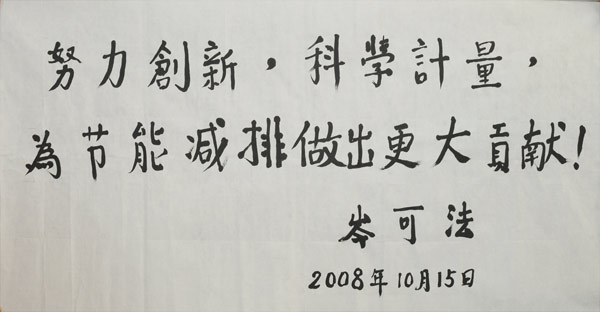 努力創新，科學計量，
為节能减排做出更大貢献！
岑可法
2008年10月15日